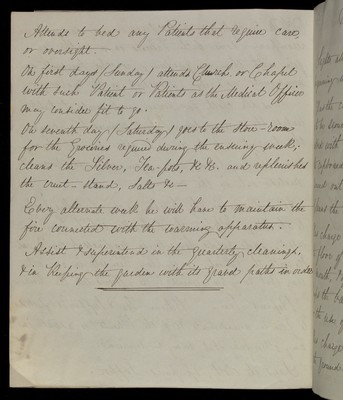 Attends to bed any Patients that require care,
or oversight.
On first days (Sunday) attends Church or Chapel
with such Patient or Patients as the Medical Officer
may consider fit to go.
On seventh day (Saturday) goes to the Store-room
for the Groceries required during the ensuing week;
cleans the Silver, Tea-pots, &c &c. and replenishes
the cruet-stand, Salts &c—
Every alternate week he will have to maintain the
fire connected with the warming apparatus.
Assist & superintend in the quarterly cleanings.
& in keeping the garden with its gravel paths in order